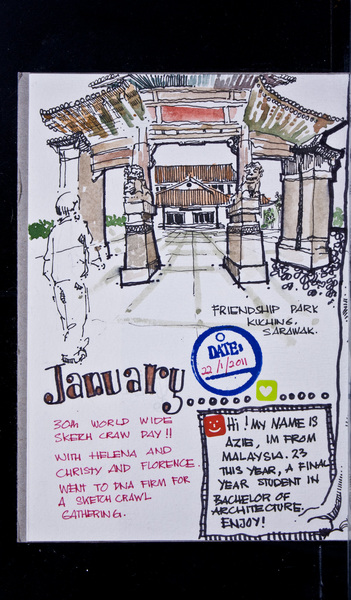 FRIENDSHIP PARK
KUCHING.
SARAWAK.
DATE:
22/1/2011
January
30TH WORLD WIDE
SKETCH CRAW DAY!!
WITH HELENA AND
CHRISTY AND FLORENCE.
WENT TO DNA FIRM FOR
A SKETCHCRAWL
GATHERING.
Hi! MY NAME IS
AZIE, IM FROM
MALAYSIA. 23
THIS YEAR, A FINAL
YEAR STUDENT IN
BACHELOR OF
ARCHITECTURE.
ENJOY!